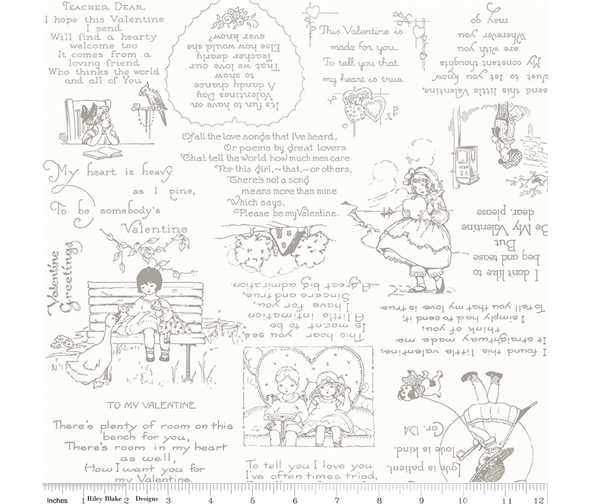 TEACHER DEAR
I hope this Valentine
I send
Will find a hearty
welcome too
It comes from a
loving friend
Who thinks the world
and all of You
Its fun to have on
Valentines Day
A dandy chance
to show
That we love our
Teacher dearly
Else how would she
ever know?
This Valentine is
made for you.
To tell you that
my heart is true
send this little Valentine,
Just to let you know
My constant thoughts
are with you
Wherever you
may go
Of all the love songs that I've heard,
Or poems by great lovers
That tell the world how much men care
For this girl,~that,~or others,
There's not a song
means more than mine
Which says,
Please be my Valentine.
My heart is heavy
as I pine,
To be somebody's
Valentine
Valentine
Greetings
I don't like to
beg and tease
But
Be My Valentine
dear, please
This heart you see
Is meant to be
A little intimation
I have for you,
Sincere and true,
A great big admiration.
I found this little valentine;
It straightway made me
think of you,
I had simply to send it
To tell you that my love is true.
TO MY VALENTINE
There's plenty of room on this
bench for you,
There's room in my heart
as well,
How I want you for
my Valentine
To tell you I love you
I've often times tried,
Love is patient,
love is kind.
Cor.
Inches 1 Riley Blake 2 Designs 3 4 5 6 7 8 9 10 11 12